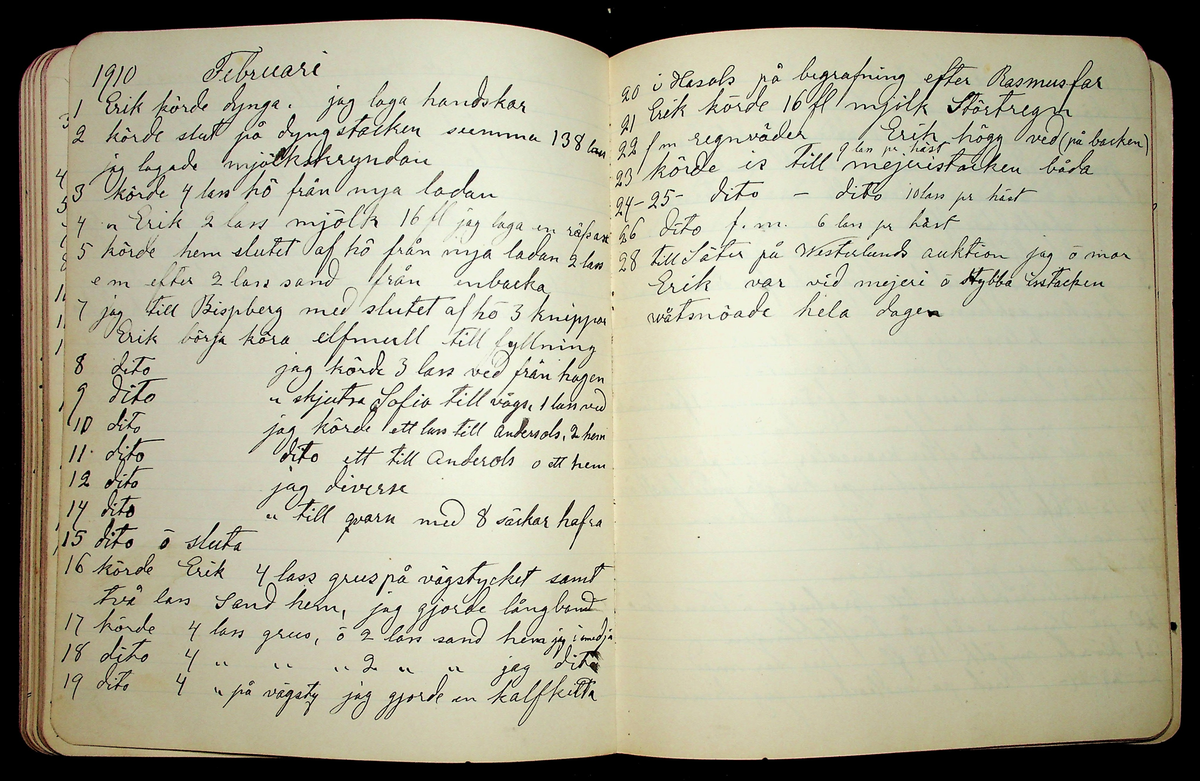 1910 Februari
1 Erik körde dynga. jag laga handskar
2 körde slut på dyngstacken summa 138 lass
jag lagade mjölkskryndan
3 körde 4 lass hö från nya ladan
4 " Erik 2 lass mjölk 16 fl jag laga en
5 körde hem slutet af hö från nya ladan 2 lass
e m efter 2 lass sand från enbacka
7 jag till Bispberg med slutet af hö 3 knippor
Erik börja köra elfmull till fyllning
8 dito jag körde 3 lass ved från hagen
9 dito " skjutsa Sofia till vägs, 1 lass ved
10 dito jag körde ett lass till Andersols, 2 hem
11 dito dito ett till Anderols o ett hem
12 dito jag diverse
14 dito " till qvarn med 8 säckar hafra
15 dito ö sluta
16 körde Erik 4 lass grus på vägstycket samt
två lass Sand hem, jag gjorde långband
17 körde 4 lass grus, ö 2 lass sand hem jag i smedja
18 dito 4 " " " 2 " " jag dito
19 dito 4 " på vägsty jag gjorde en kalfkätta
20 i Hasols på begrafning efter Rasmusfar
21 Erik körde 16 fl mjölk Störtregn
22 f m regnväder Erik högg ved (på backen)
9 lass pr. häst
23 körde is till mejeristacken båda
24 - 25 - dito - dito 10 lass pr häst
26 dito f. m. 6 lass pr häst
28 till Säter på Westerlunds auktion jag ö mor
Erik var vid mejeri ö stybba isstacken
wåtsnöade hela dagen